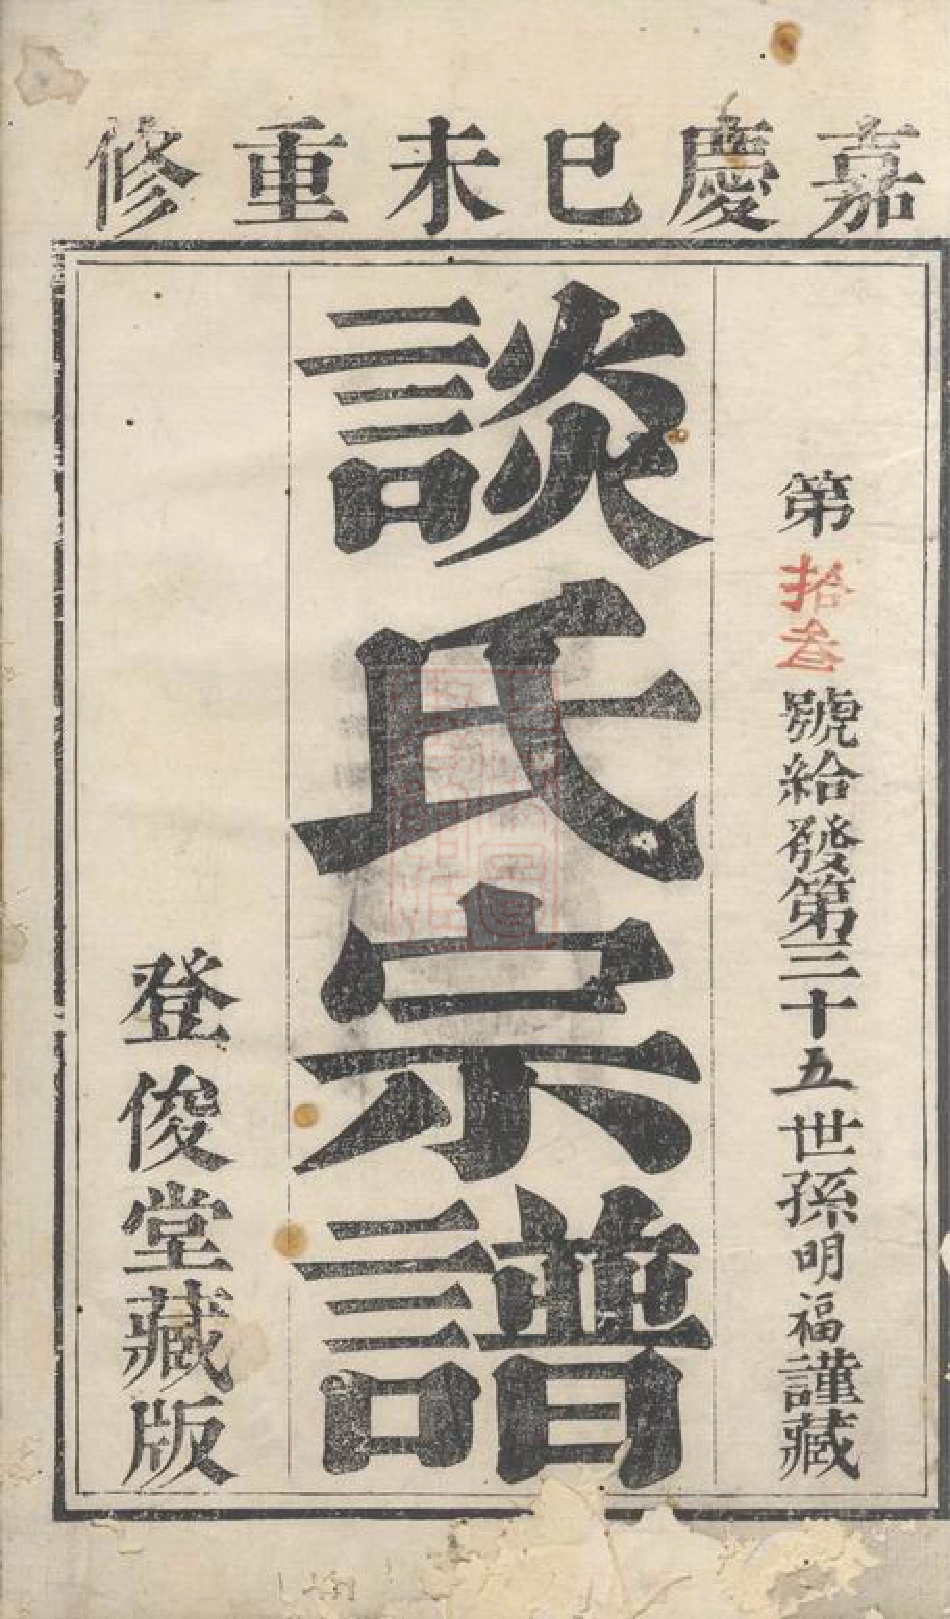 嘉慶己未重修
第拾叁號給發第三十五世孫明福謹藏
談氏宗譜
登俊堂藏版